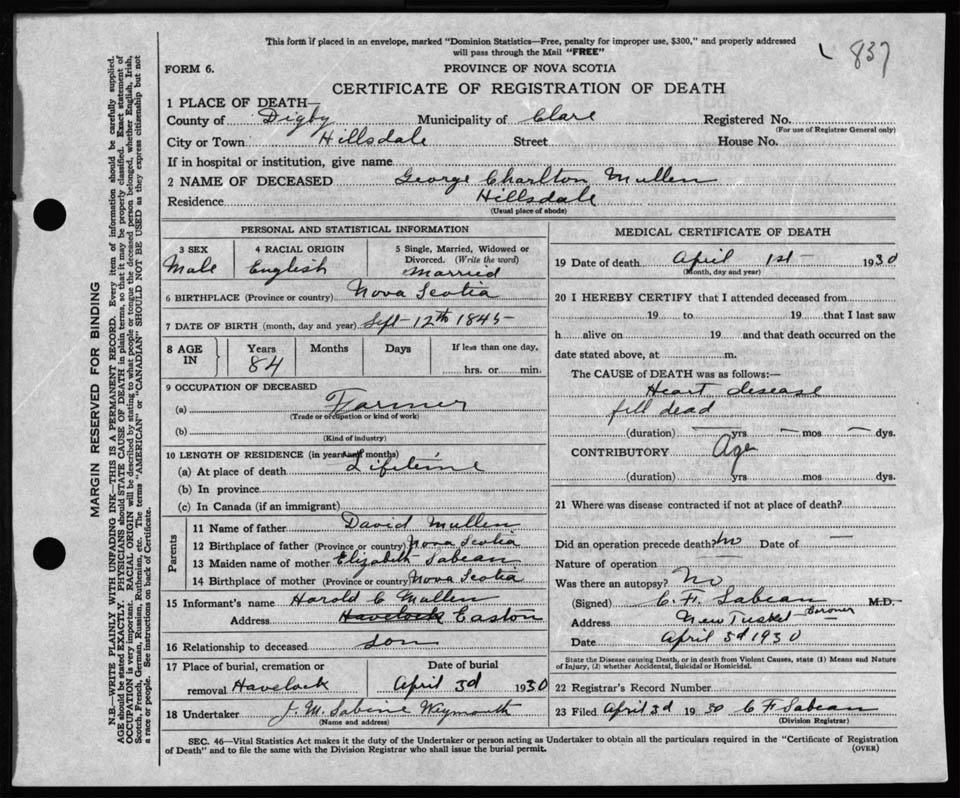 This form if placed in an envelope, marked "Dominion Statistics—Free, penalty for improper use, $300," and properly addressed
will pass through the Mail "FREE"
837
FORM 6.
PROVINCE OF NOVA SCOTIA
CERTIFICATE OF REGISTRATION OF DEATH
1 PLACE OF DEATH—
County of Digby Municipality of Clare Registered No.
(For use of Registrar General only)
City or Town Hillsdale Street House No.
If in hospital or institution, give name
2 NAME OF DECEASED George Charlton Mullen
Residence Hillsdale
(Usual place of abode)
PERSONAL AND STATISTICAL INFORMATION
3 SEX 4 RACIAL ORIGIN 5 Single, Married, Widowed or
Divorced. (Write the word)
Male English Married
6 BIRTHPLACE (Province or country) Nova Scotia
7 DATE OF BIRTH (month, day and year) Sept 12th 1845
8 AGE IN Years Months Days If less than one day,
84 hrs. or min.
9 OCCUPATION OF DECEASED
(a) Farmer
(Trade or occupation or kind of work)
(b)
(Kind of industry)
10 LENGTH OF RESIDENCE (in years and months)
(a) At place of death Lifetime
(b) In province
(c) In Canada (if an immigrant)
Parents
11 Name of father David Mullen
12 Birthplace of father (Province or country) Nova Scotia
13 Maiden name of mother Elizabeth Sabean
14 Birthplace of mother (Province or country) Nova Scotia
15 Informant's name Harold C Mullen
Address Havelock Easton
16 Relationship to deceased son
17 Place of burial, cremation or Date of burial
removal Havelock April 3d 1930
18 Undertaker J. M. Sabine Weymouth
(Name and address)
MEDICAL CERTIFICATE OF DEATH
19 Date of death April 1st 1930
(Month, day and year)
20 I HEREBY CERTIFY that I attended deceased from
19 to 19 that I last saw
h alive on 19 and that death occurred on the
date stated above, at m.
The CAUSE of DEATH was as follows:—
Heart disease
fell dead
(duration) — yrs. — mos — dys.
CONTRIBUTORY Age
(duration) yrs mos dys.
21 Where was disease contracted if not at place of death?
Did an operation precede death? No Date of —
Nature of operation
Was there an autopsy? No
(Signed) C. F. Sabean M.D.
Coroner
Address New Tusket
Date April 3d 1930
State the Disease causing Death, or in death from Violent Causes, state (1) Means and Nature
of Injury, (2) whether Accidental, Suicidal or Homicidal.
22 Registrar's Record Number
23 Filed April 3d 1930 C F Sabean
(Division Registrar)
SEC. 46—Vital Statistics Act makes it the duty of the Undertaker or person acting as Undertaker to obtain all the particulars required in the "Certificate of Registration
of Death" and to file the same with the Division Registrar who shall issue the burial permit. (OVER)
MARGIN RESERVED FOR BINDING
N.B.—WRITE PLAINLY WITH UNFADING INK—THIS IS A PERMANENT RECORD. Every item of information should be carefully supplied.
AGE should be stated EXACTLY. PHYSICIANS should STATE CAUSE OF DEATH in plain terms, so that it may be properly classified. Exact statement of
OCCUPATION is very important. RACIAL ORIGIN will be described by stating to what people or tongue the deceased person belonged, whether English, Irish,
Scotch, French, German, Russian, Ruthenian, etc. The terms "AMERICAN" or "CANADIAN" SHOULD NOT BE USED as they express citizenship but not
a race or people. See instructions on back of Certificate.